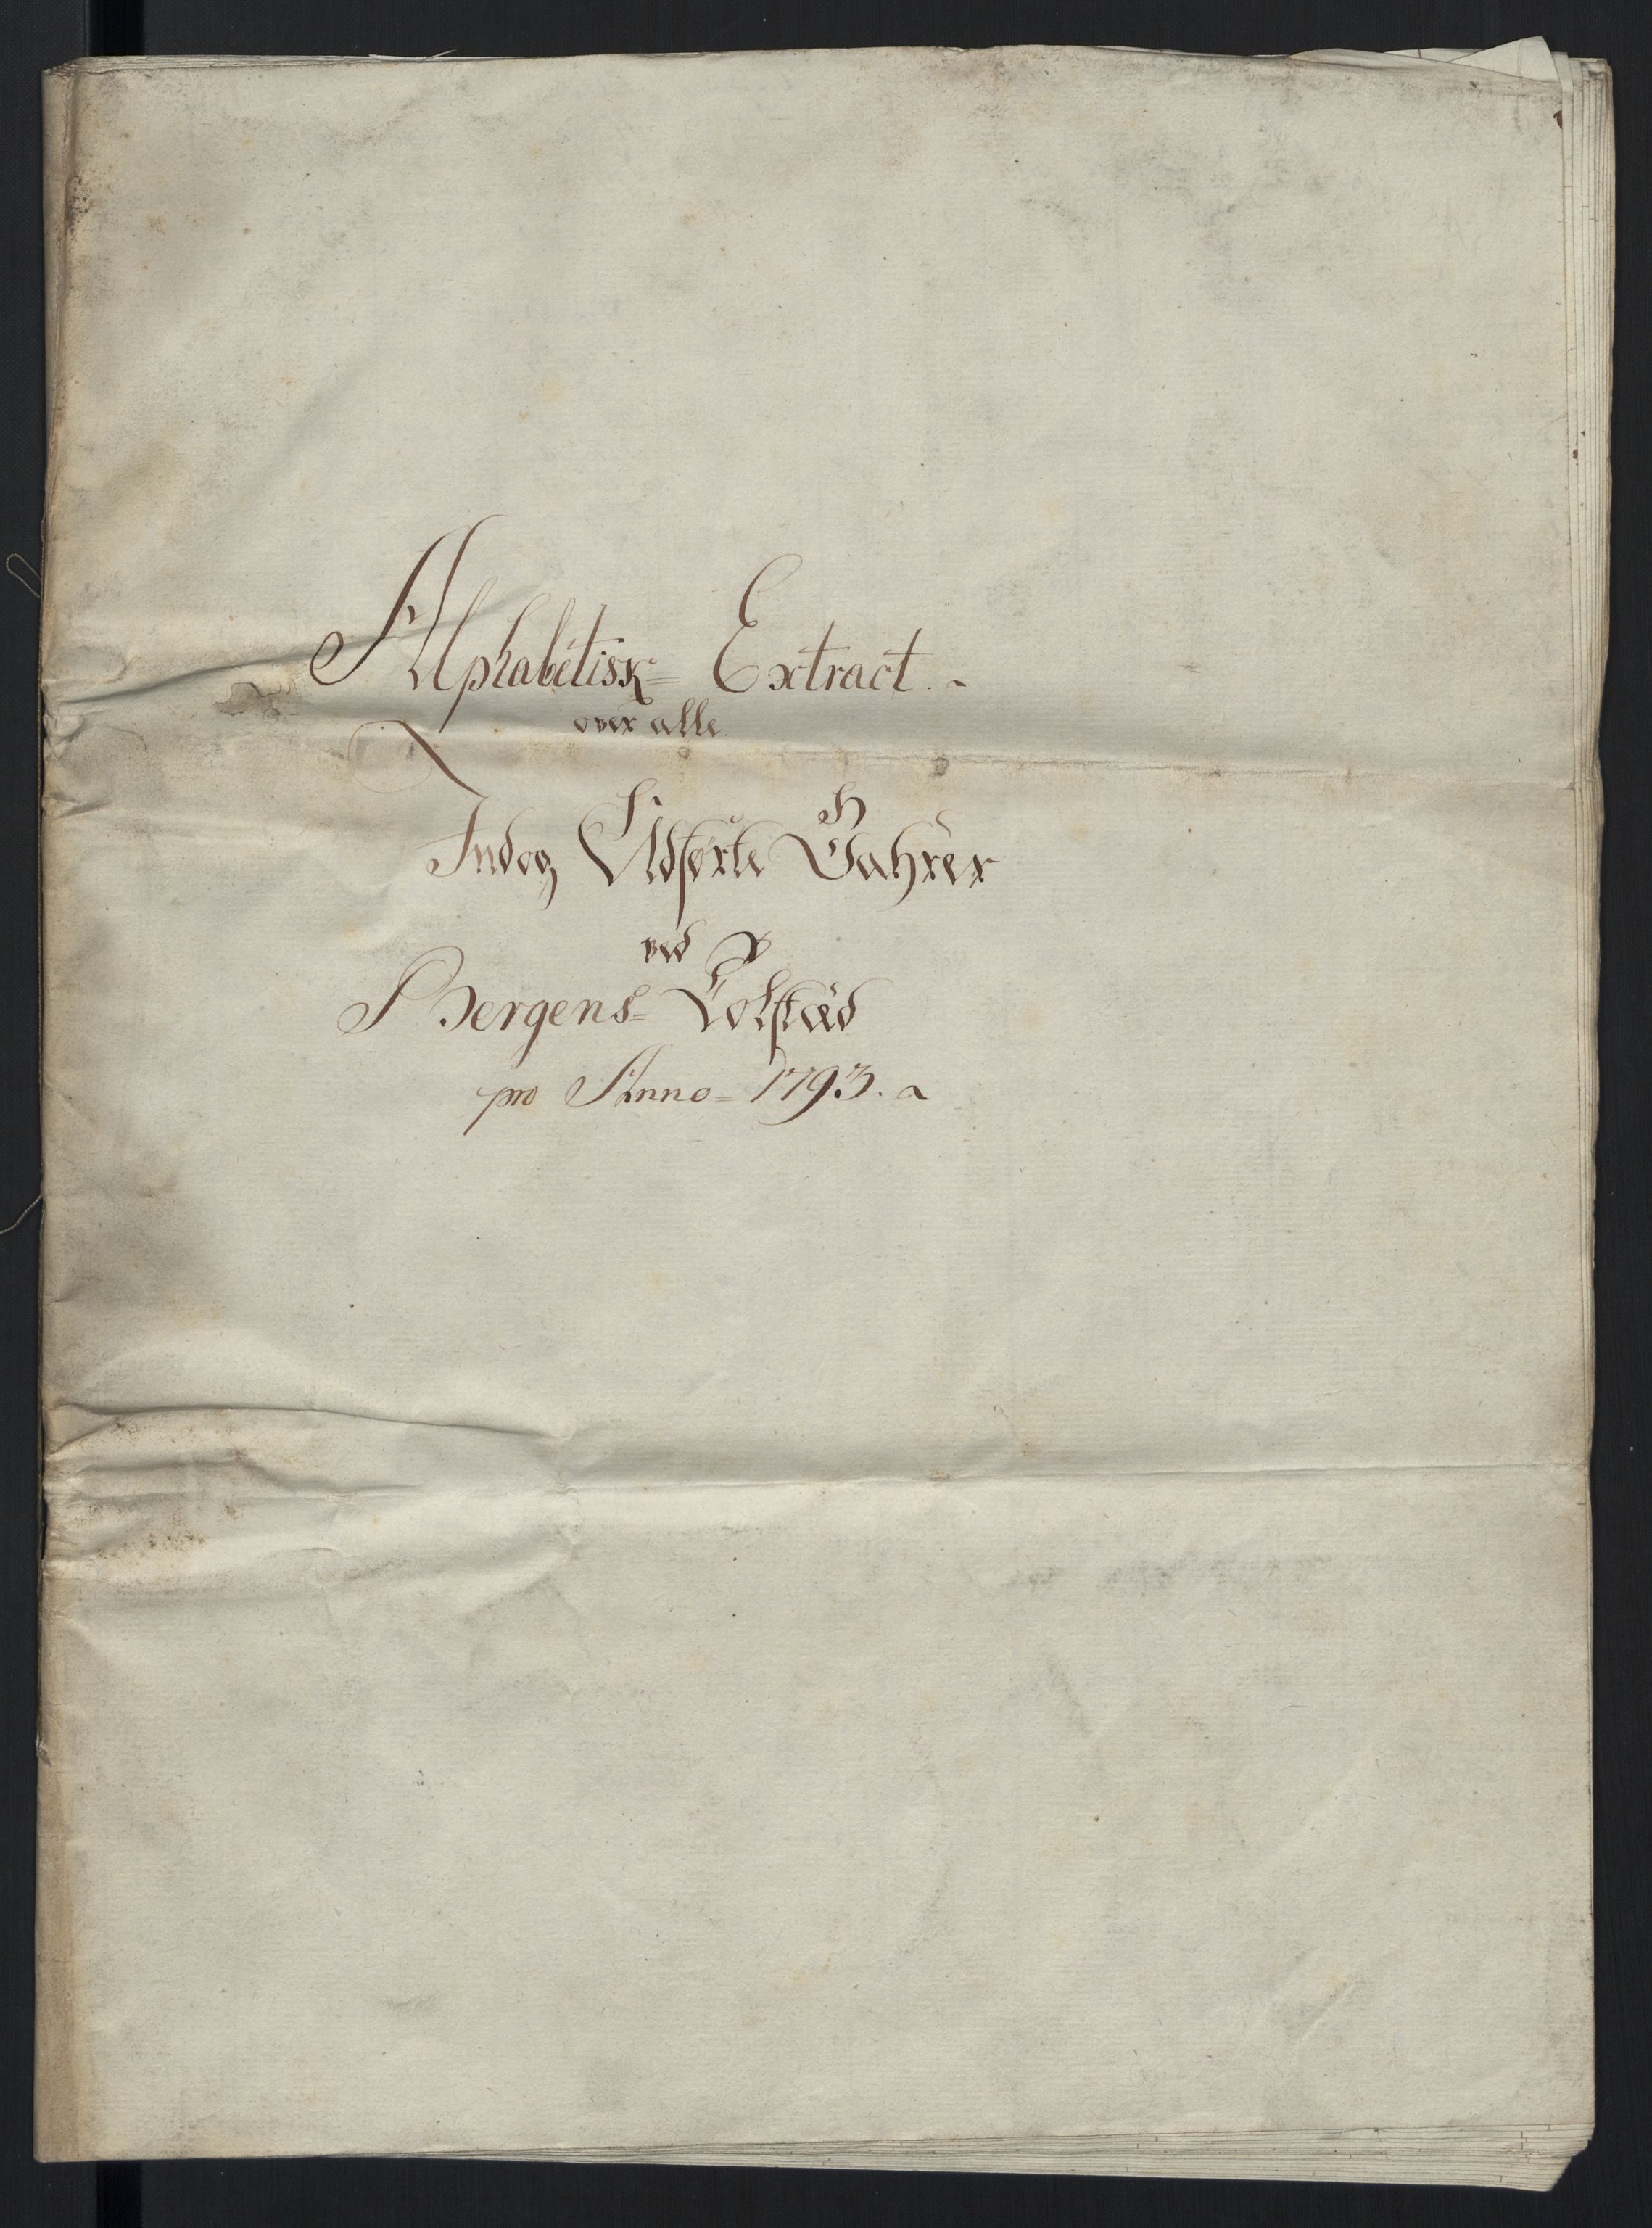 Alphabetisk= Extract.
over alle
Ind og Udførte Vahrer
ved
Bergens= Tolstæd
pro Anno= 1793.